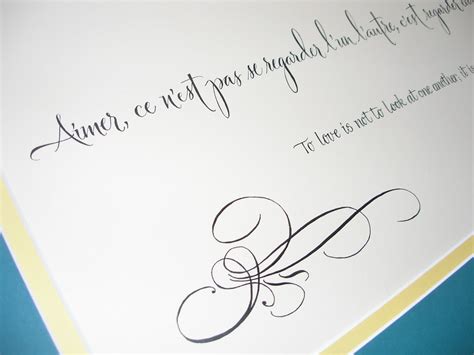 Aimer, ce n'est pas se regarder l'un l'autre, c'est regarder
To love is not to look at one another, it is